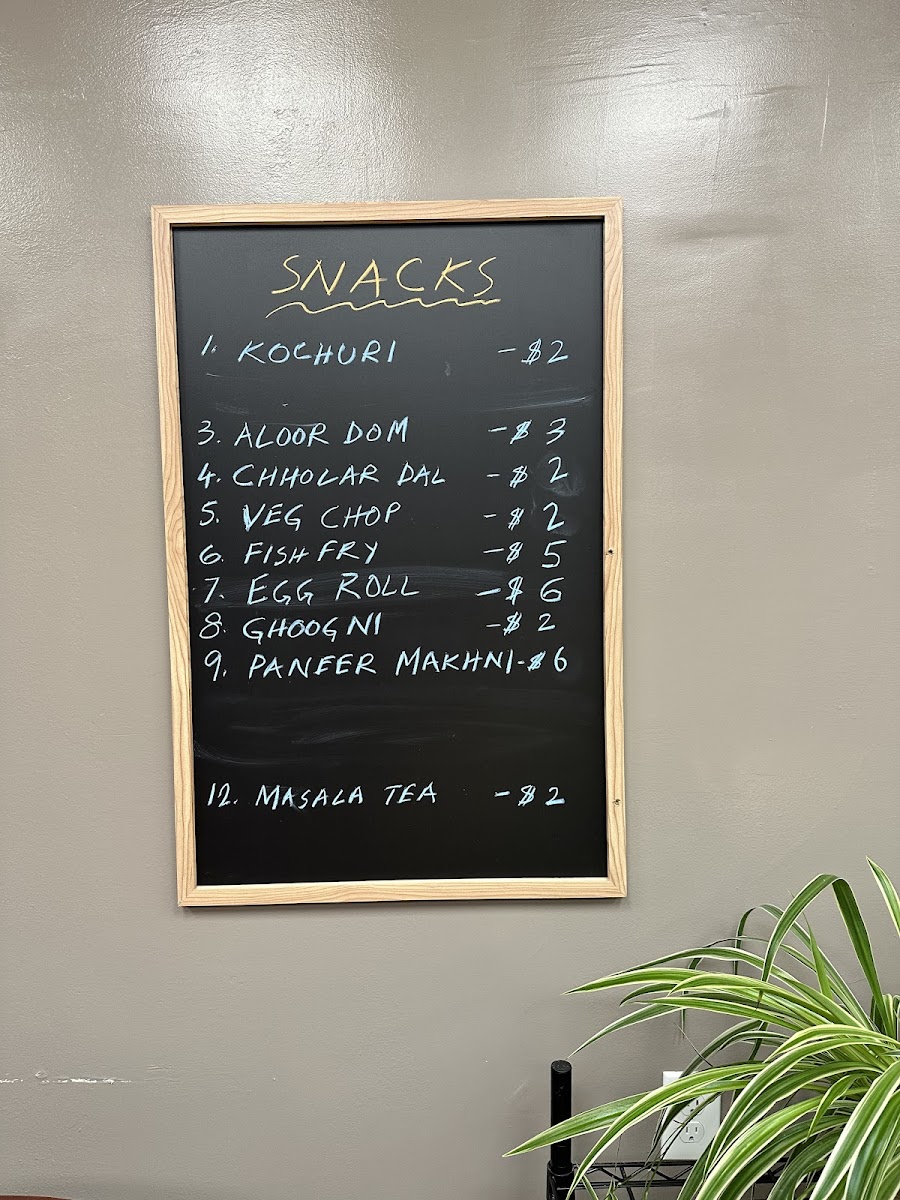 SNACKS
1. KOCHURI - $2
3. ALOOR DOM - $ 3
4. CHHOLAR DAL - $ 2
5. VEG CHOP - $ 2
6. FISH FRY - $ 5
7. EGG ROLL - $ 6
8. GHOOGNI - $ 2
9. PANEER MAKHNI - $ 6
12. MASALA TEA - $ 2